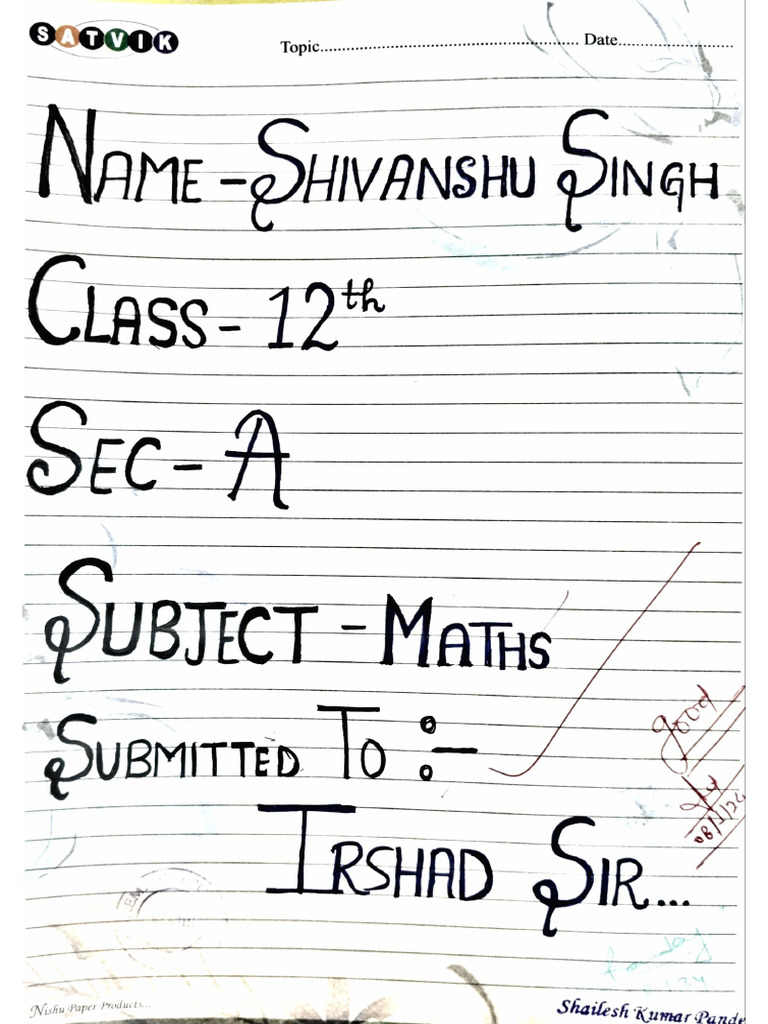 SATVIK
Topic.................................................... Date........................
NAME - SHIVANSHU SINGH
CLASS - 12th
SEC - A
SUBJECT - MATHS
good
SUBMITTED TO :-
IRSHAD SIR...
Nishu Paper Products...
Shailesh Kumar Pande